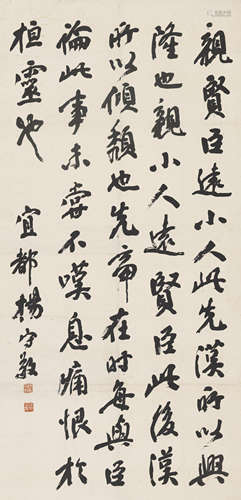 親賢臣遠小人此先漢所以興
隆也親小人遠賢臣此後漢
所以傾頹也先帝在時每與臣
論此事未嘗不嘆息痛恨於
桓靈也
宜都楊守敬